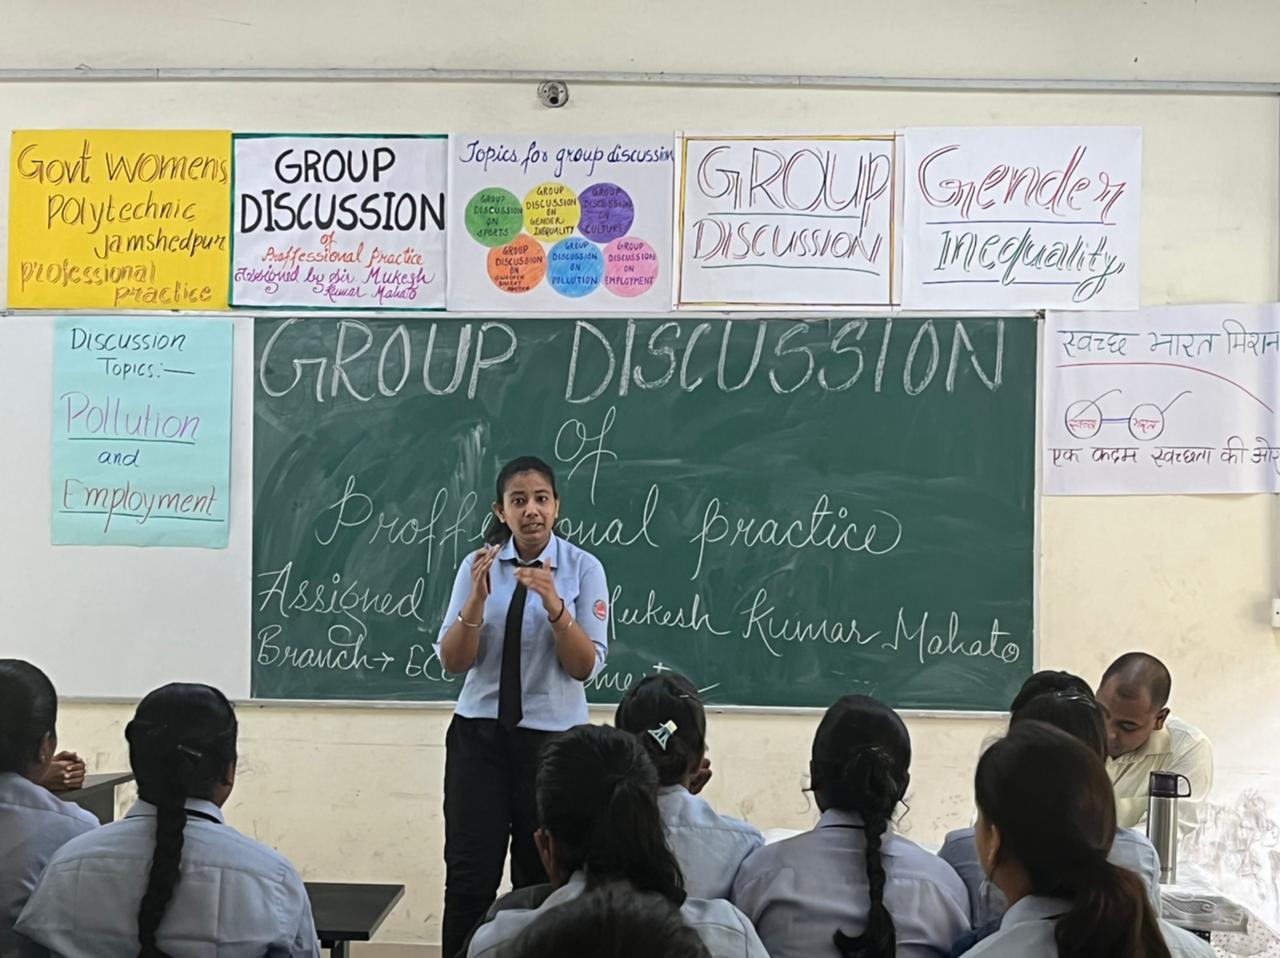 Govt womens
polytechnic
jamshedpur
professional
practice
GROUP
DISCUSSION
of
Proffessional practice
Assigned by Sir Mukesh
Kumar Mahato
Topics for group discussion
GROUP
DISCUSSION
ON
SPORTS
GROUP
DISCUSSION
ON
GENDER
INEQUALITY
GROUP
DISCUSSION
ON
CULTURE
GROUP
DISCUSSION
ON
GROUP
DISCUSSION
ON
POLLUTION
GROUP
DISCUSSION
ON
EMPLOYMENT
GROUP
DISCUSSION
Gender
Inequality
Discussion
Topics:—
Pollution
and
Employment
GROUP DISCUSSION
Of
practice
Assigned Kumar Mahato
Branch→
स्वच्छ भारत मिशन
स्वच्छ भारत
एक कदम स्वच्छता की ओर